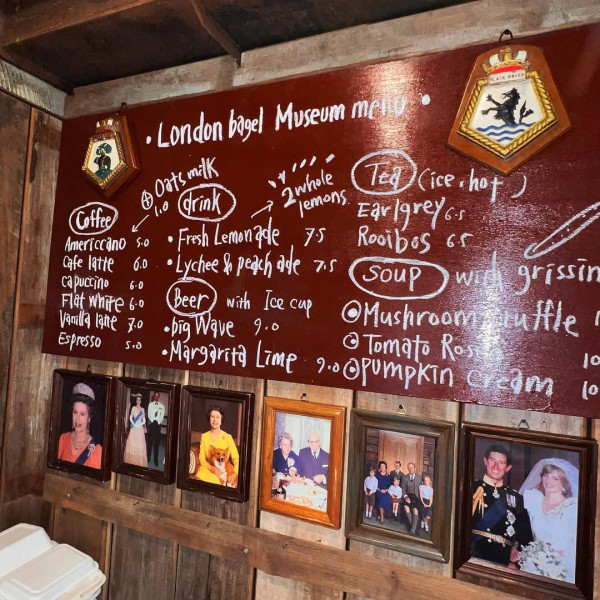 • London bagel Museum menu •
BLACK ROVER
⊕ Oats milk
1.0
Coffee
Americcano 5.0
Cafe latte 6.0
Capuccino 6.0
Flat white 6.0
Vanilla latte 7.0
Espresso 5.0
drink
2 whole
lemons
• Fresh Lemonade 7.5
• Lychee & peach ade 7.5
Beer with Ice cup
• Big Wave 9.0
• Margarita Lime 9.0
Tea (ice. hot)
Earlgrey 6.5
Rooibos 6.5
Soup with grissin
Mushroom truffle
Tomato Rose
Pumpkin cream